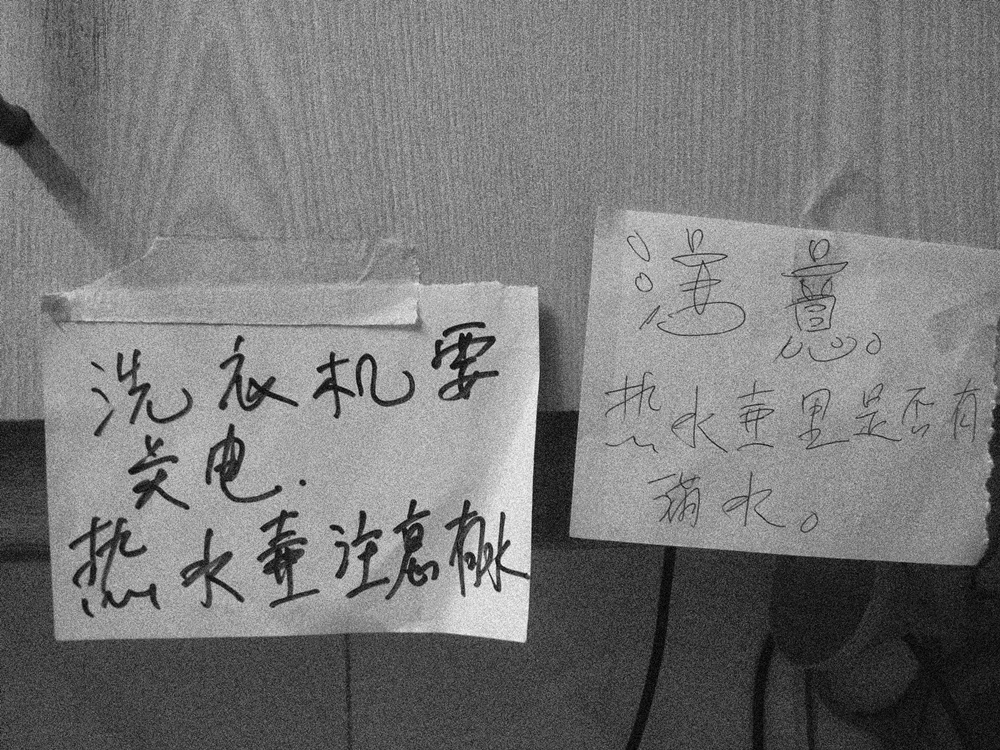 洗衣机要
关电.
热水壶注意有水
注意。
热水壶里是否有
满水。